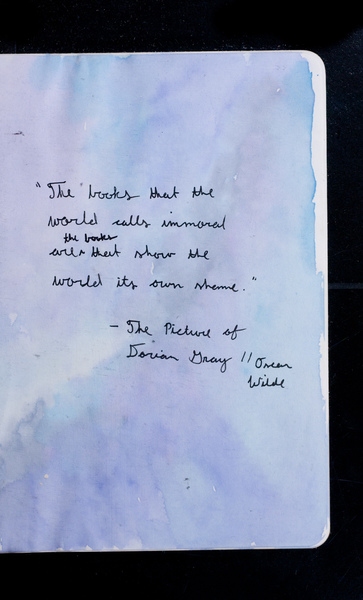 "The books that the
world calls immoral
the books
are that show the
world its own shame."
- The Picture of
Dorian Gray // Oscar
Wilde